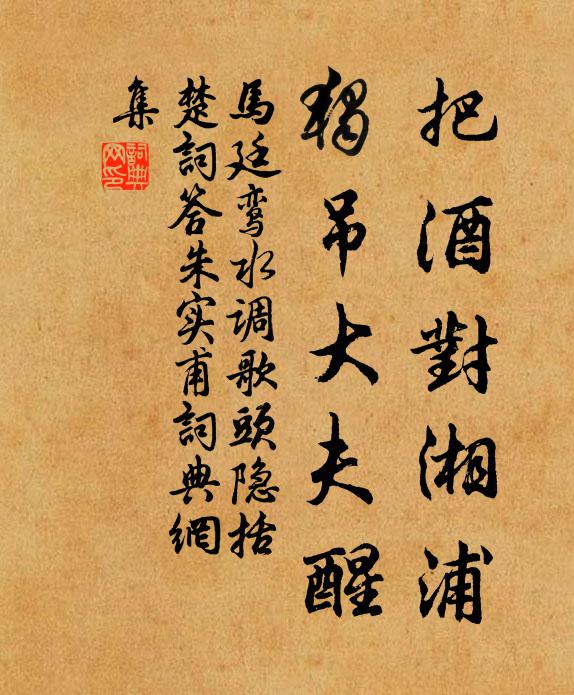 把酒對湘浦
獨吊大夫醒
馬廷鸞水调歌頭隐括
楚詞答朱实甫詞典網
集
詞典
网印